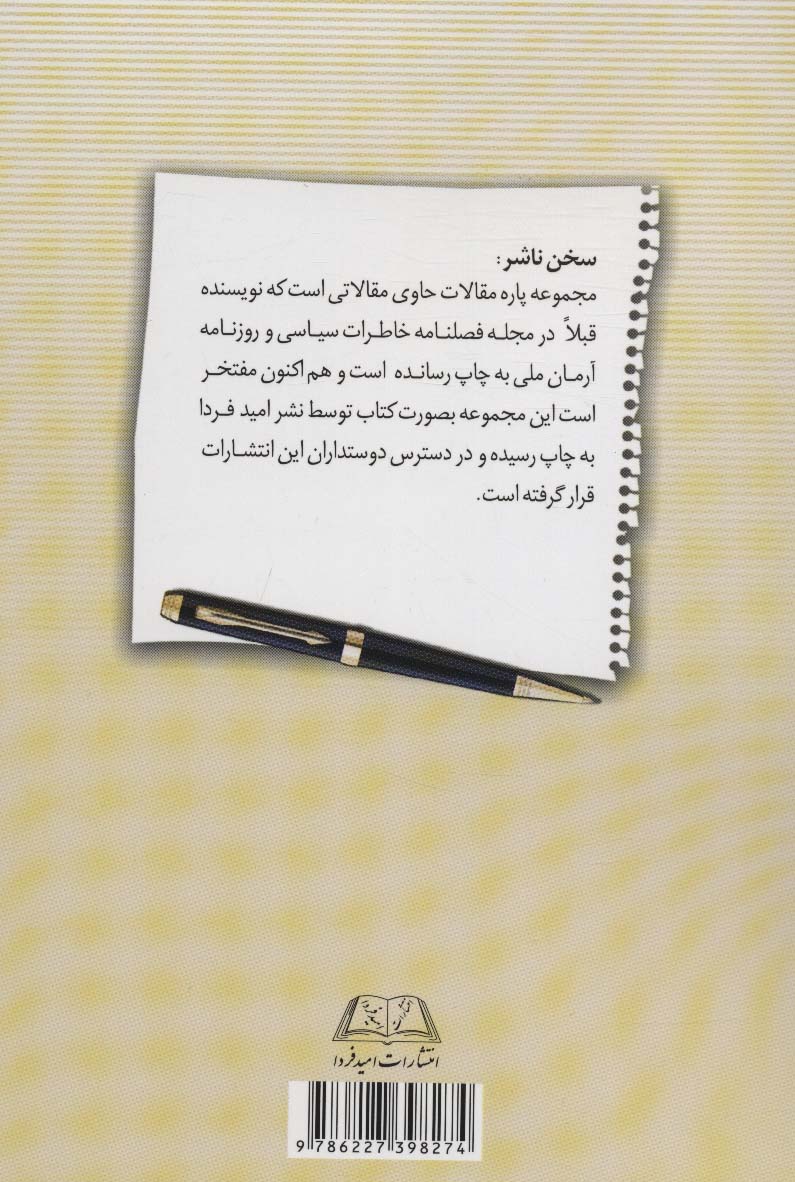 سخن ناشر:
مجموعه پاره مقالات حاوی مقالاتی است که نویسنده
قبلاً در مجله فصلنامه خاطرات سیاسی و روزنامه
آرمان ملی به چاپ رسانده است و هم اکنون مفتخر
است این مجموعه بصورت کتاب توسط نشر امید فردا
به چاپ رسیده و در دسترس دوستداران این انتشارات
قرار گرفته است.
انتشارات امید فردا
9 786227 398274